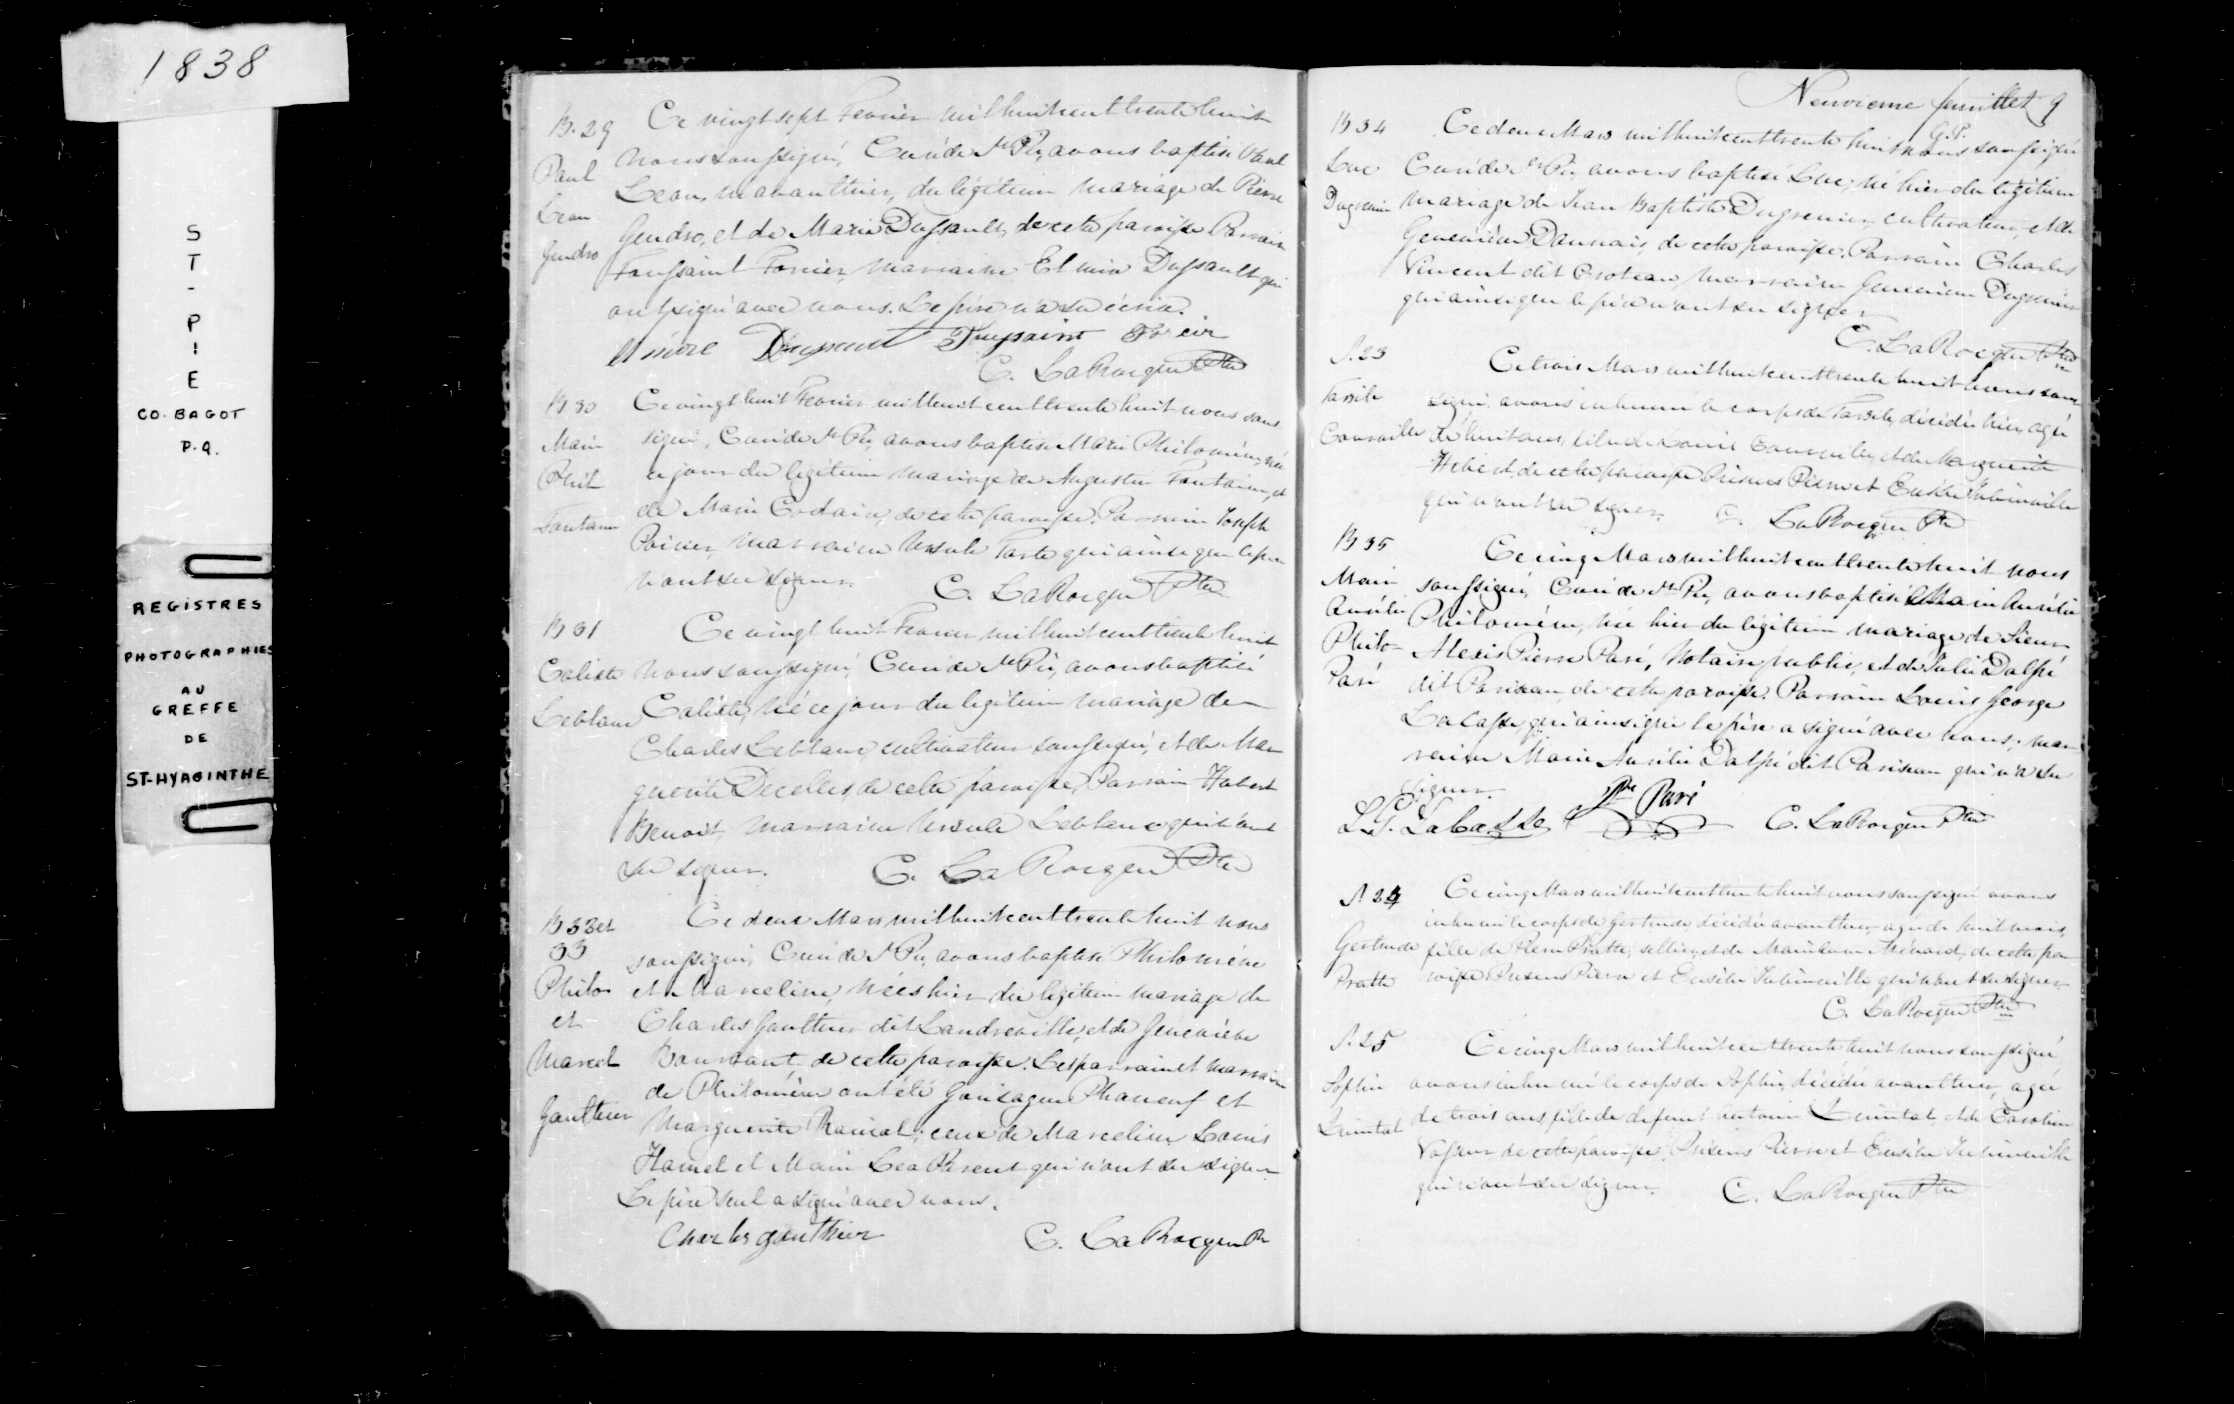 1838
S
T
-
P
I
E
CO. BAGOT
P.Q.
REGISTRES
PHOTOGRAPHIES
AU
GREFFE
DE
ST-HYACINTHE
B. 29
Paul
Leon
Gendro
Ce vingt sept Fevrier mil huit cent trente huit
nous soussigné, Curé de St Pie, avons baptisé Paul
Leon, né avant hier, du légitime mariage de Pierre
Gendro, et de Marie Dussault, de cette paroisse Parrain
Toussaint marraine Elmire Dussault qui
ont signé avec nous. Le père n'a su écrire.
Toussaint
C. LaRocque Ptre
B 30
Marie
Phil
Fontaine
Ce vingt huit Fevrier mil huit cent trente huit nous sous
signé, Curé de St Pie, avons baptisé Marie Philomène, née
ce jour du légitime mariage de Augustin Fontaine, et
de Marie de cette paroisse. Parrain Joseph
Poirier, marraine Ursule qui ainsi que le père
n'ont su signer.
C. LaRocque Ptre
B 31
Caliste
Leblanc
Ce vingt huit Fevrier mil huit cent trente huit
nous soussigné, Curé de St Pie, avons baptisé
Caliste, né ce jour du légitime mariage de
Charles Leblanc, cultivateur soussigné, et de Mar
guerite Decelles, de cette paroisse, Parrain Hubert
Benoit, marraine Ursule Leblanc qui n'ont
su signer.
C. LaRocque Ptre
B 32 et
33
Philo
et
Marcel
Gauthier
Ce deux Mars mil huit cent trente huit nous
soussigné, Curé de St Pie, avons baptisé Philomène
et Marceline, nées hier du légitime mariage de
Charles Gauthier dit Landreville, et de Genevieve
de cette paroisse. Les parrain et marraine
de Philomène ont été Gonzague Phaneuf et
Marguerite ceux de Marceline Louis
Hamel et Marie qui n'ont su signer
Le père seul a signé avec nous.
Charles gauthier
C. LaRocque Ptr
Neuvieme feuillet 9
B 34
Luc
Dugrenier
G.P.
Ce deux Mars mil huit cent trente huit nous soussigné
Curé de St Pie, avons baptisé Luc, né hier du légitime
mariage de Jean Baptiste Dugrenier, cultivateur, et de
Genevieve Daunais, de cette paroisse. Parrain Charles
Vincent dit marraine Genevieve Dugrenier
qui ainsi que le père n'ont su signer
C. LaRocque Ptre
S. 23
Ce trois Mars mil huit cent trente huit nous sous
signé, avons inhumé le corps de décédé hier, agé
de huit ans, et de Marguerite
Hebert, de cette paroisse Présens Pierre et Eusèbe
qui n'ont su signer.
C. LaRocque Ptre
B 35
Marie
Aurélie
Philo
Paré
Ce cinq Mars mil huit cent trente huit nous
soussigné, Curé de St Pie, avons baptisé Marie Aurélie
Philomène, née hier du légitime mariage de Sieur
Alexis Pierre Paré, Notaire public, et de Julie Dalpé
dit Pariseau, de cette paroisse. Parrain Louis George
Lacasse, qui ainsi que le père a signé avec nous; mar
raine Marie Aurélie Dalpé dit Pariseau qui n'a su
signer.
L. G. Lacasse
Paré
C. LaRocque Ptre
S 24
Gertrude
Pratte
Ce cinq Mars mil huit cent trente huit nous soussigné avons
inhumé le corps de Gertrude, décédée avant hier, agée de huit mois,
fille de Pierre Pratte, sellier, et de Ménard, de cette pa
roisse Présens Pierre et Eusèbe qui n'ont su signer
C. LaRocque Ptre
S. 25
Sophie
Ce cinq Mars mil huit cent trente huit nous soussigné
avons inhumé le corps de Sophie, décédée avant hier, agée
de trois ans, fille de défunt et de Caroline
de cette paroisse. Présens Pierre et Eusèbe
qui n'ont su signer.
C. LaRocque Ptre